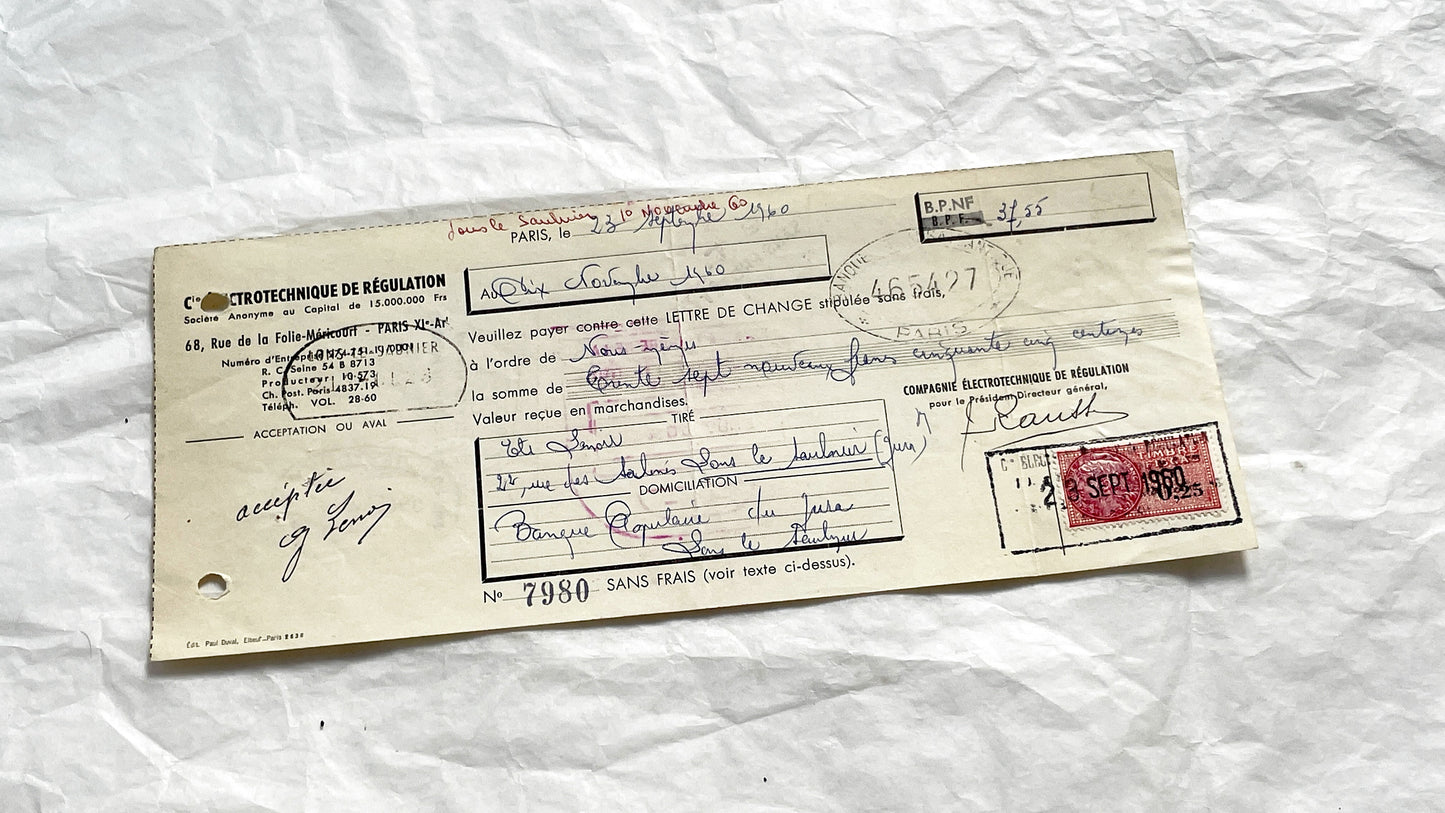 Lons le Saulnier 10 Novembre 60
PARIS, le 23 Septembre 1960
B.P.NF 37,55
B.P.F.
Cie ECTROTECHNIQUE DE RÉGULATION
Société Anonyme au Capital de 15.000.000 Frs
68, Rue de la Folie-Méricourt - PARIS XIe-Art
Numéro d'Entrep
R. C. Seine 54 B 8713
Producteur 10.573
Ch. Post. Paris 4837.19
Téléph. VOL. 28-60
LONS SAUNIER
ACCEPTATION OU AVAL
acceptée
g Lenoir
Édit. Paul Duval, Elbeuf-Paris 2636
Au Dix Novembre 1960
465427
PARIS
Veuillez payer contre cette LETTRE DE CHANGE stipulée sans frais,
à l'ordre de Nous mêmes
la somme de Trente sept nouveaux francs cinquante cinq centimes
Valeur reçue en marchandises.
TIRÉ
Ets Lenoir
22, rue des Salines Lons le Saulnier (Jura)
DOMICILIATION
Banque Populaire du Jura
Lons le Saulnier
No 7980 SANS FRAIS (voir texte ci-dessus).
COMPAGNIE ÉLECTROTECHNIQUE DE RÉGULATION
pour le Président Directeur général,
TIMBRE
23 SEPT. 1960
0.25